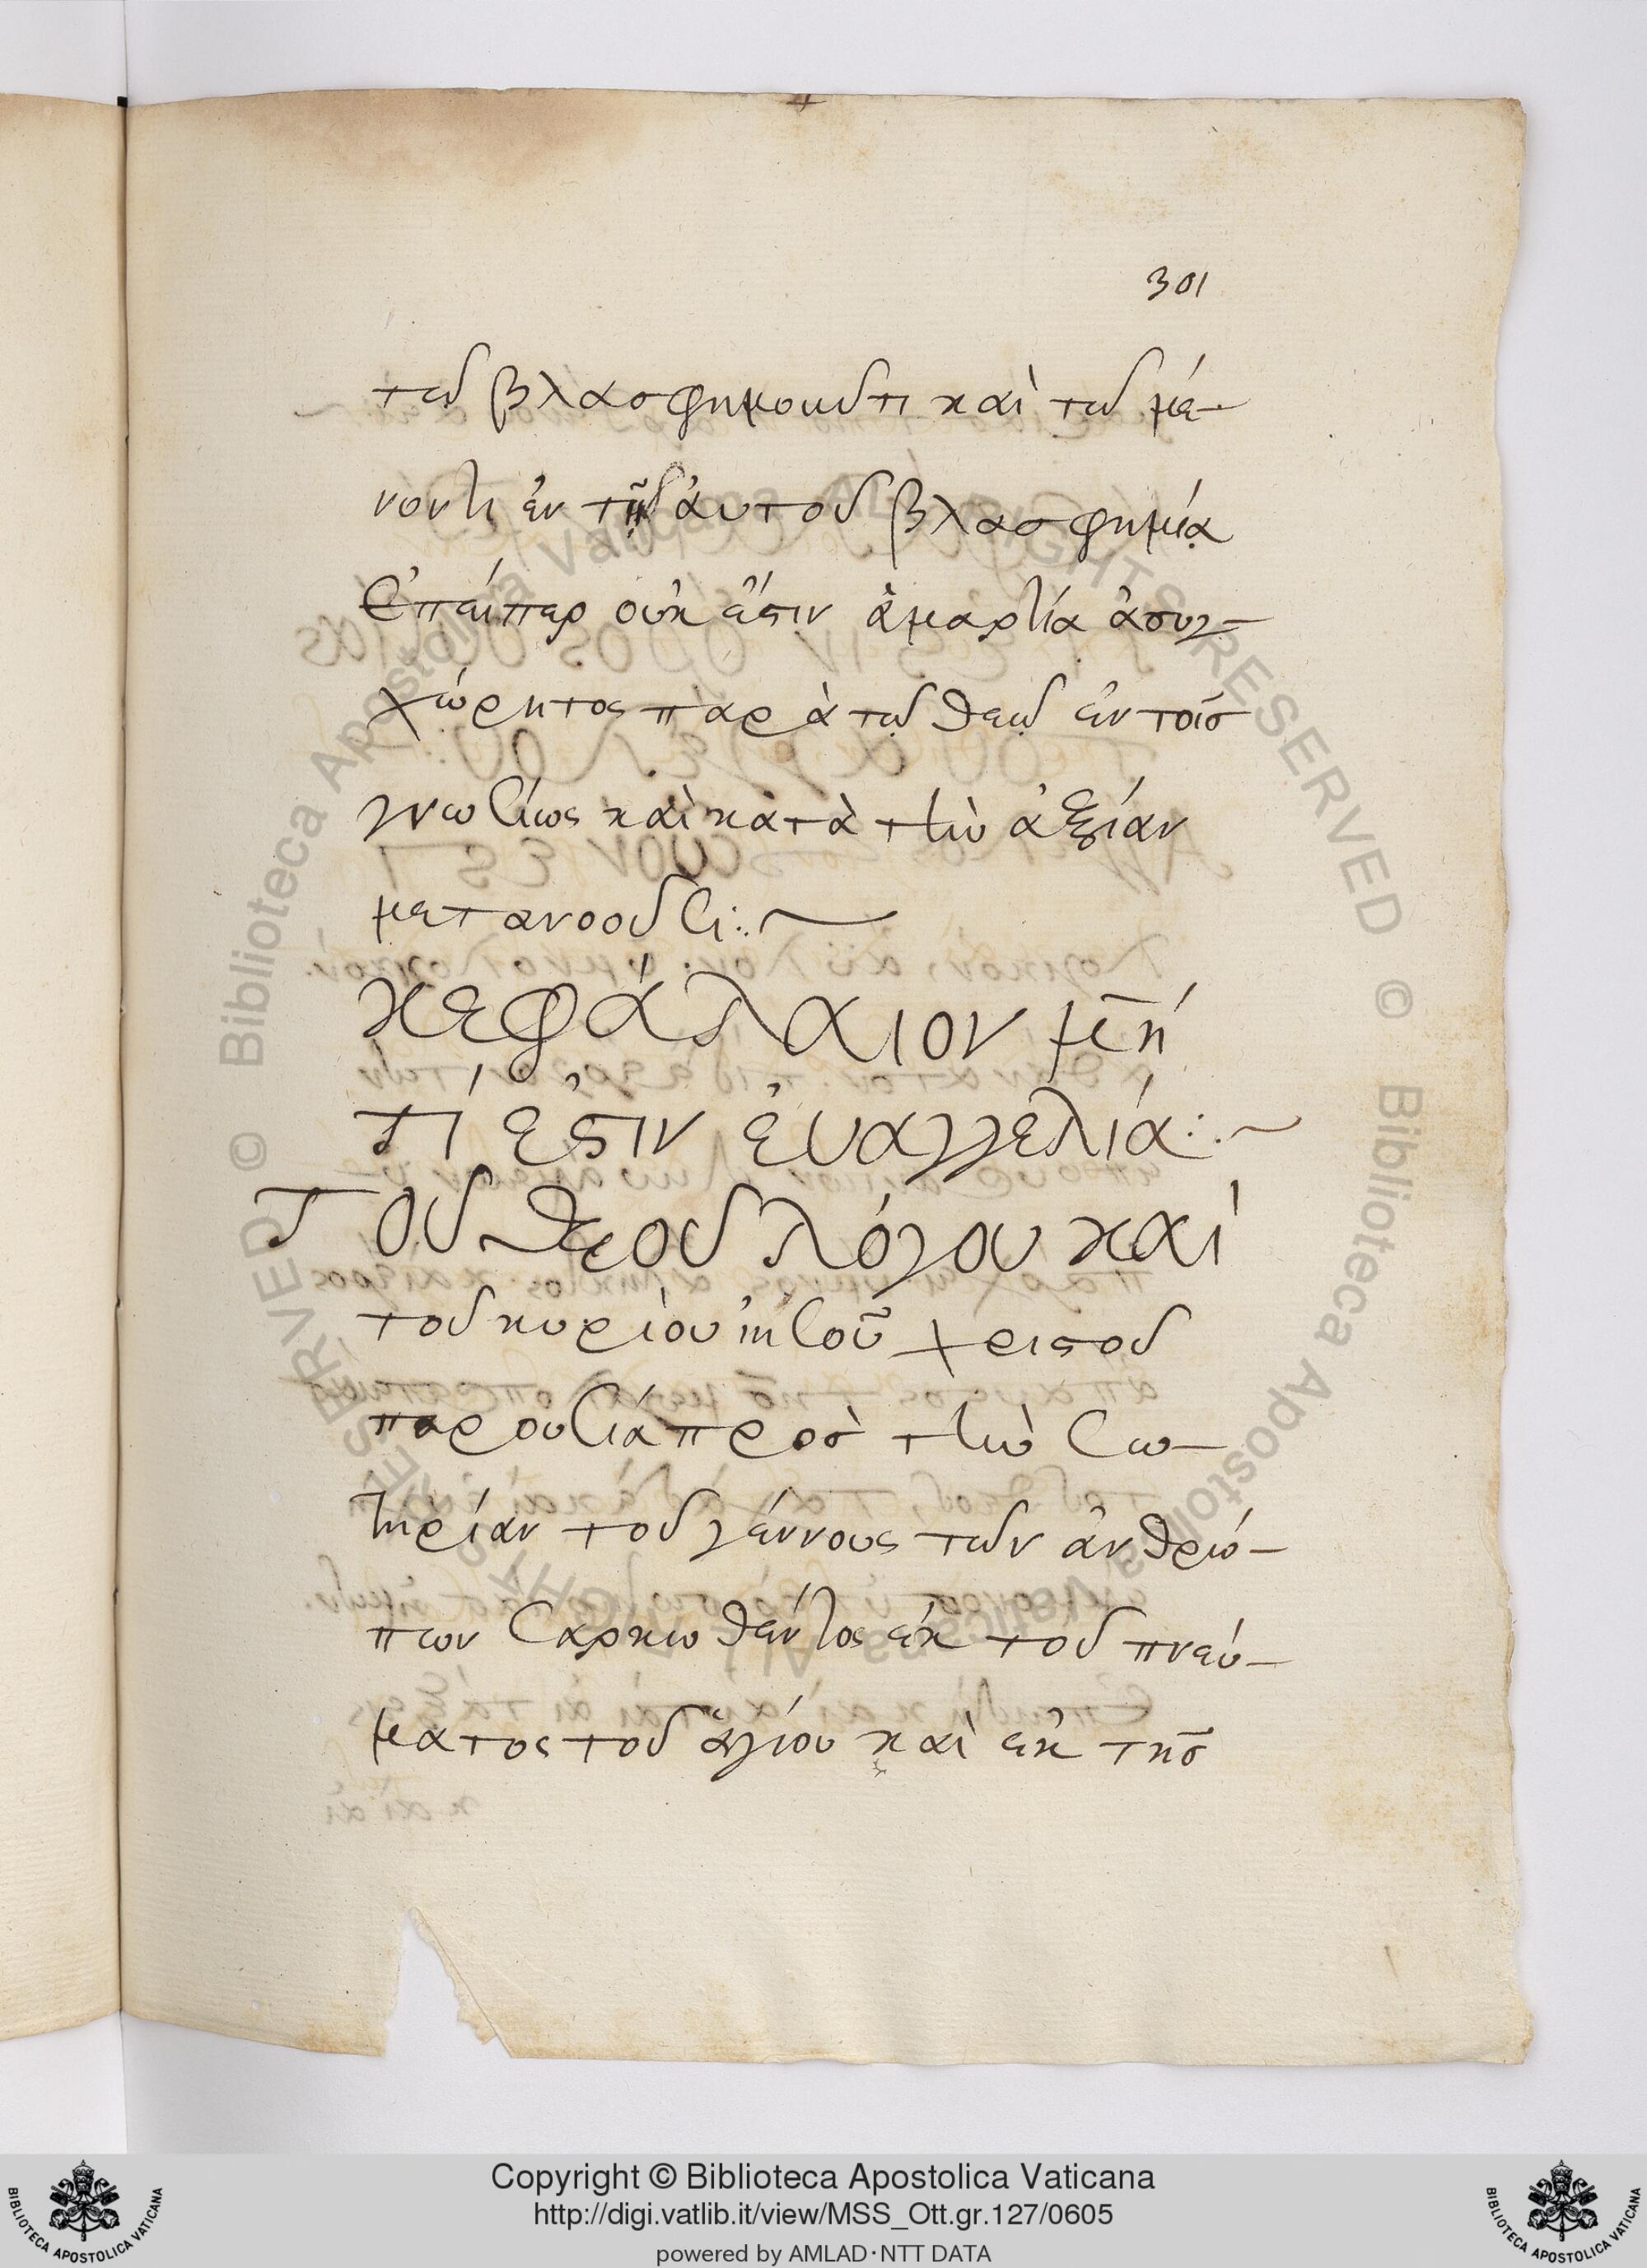 301
τῶ βλασφημοῦντι καὶ τῶ μέ-
νοντι ἐν τῆ αὐτοῦ βλασφημίᾳ
Ἐπείπερ οὐκ ἔστιν ἁμαρτία ἀσυγ-
χώρητος παρὰ τῷ θεῷ ἐν τοῖσ
γνωσίως καὶ κατὰ τὴν ἀξίαν
μετανοοῦσι:.
κεφάλαιον μ̅η´
τί ἐστιν ἐυαγγελία:.~
Τοῦ θεοῦ λόγου καὶ
τοῦ κυρίου ἰησοῦ χριστοῦ
παρουσία πρὸσ τὴν σω-
τηρίαν τοῦ γέννους τῶν ἀνθρώ-
πων σαρκωθέντος ἐκ τοῦ πνεύ-
ματος τοῦ ἁγίου καὶ ἐκ τῆσ
© Biblioteca Apostolica Vaticana ALL RIGHTS RESERVED
© Biblioteca Apostolica Vaticana ALL RIGHTS RESERVED
BIBLIOTECA APOSTOLICA VATICANA
Copyright © Biblioteca Apostolica Vaticana
http://digi.vatlib.it/view/MSS_Ott.gr.127/0605
powered by AMLAD·NTT DATA
BIBLIOTECA APOSTOLICA VATICANA